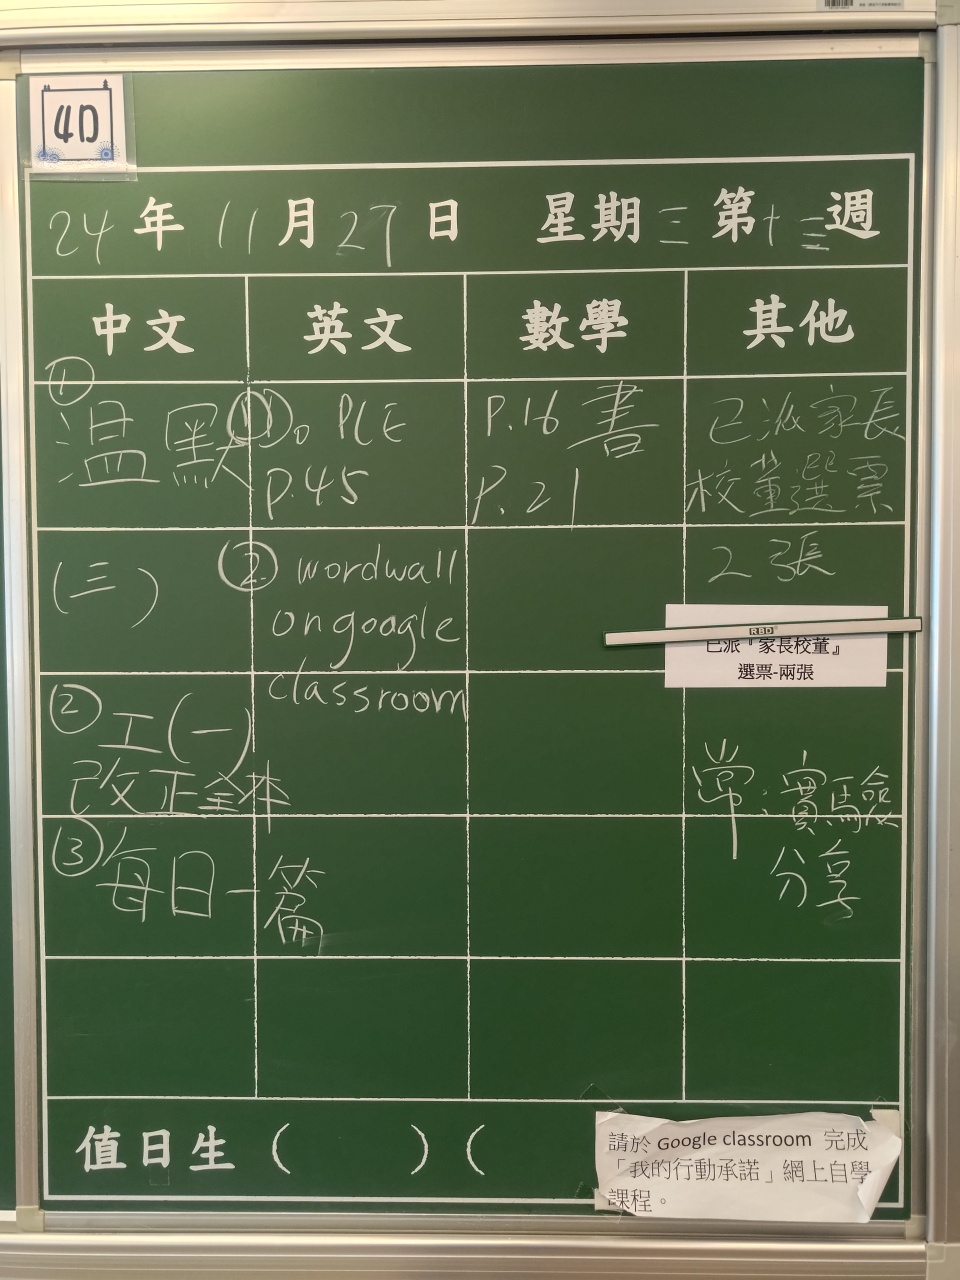 4D
24年 11月27日 星期三 第十三週
中文 英文 數學 其他
① 溫默
(三)
② 工(一)
改正全本
③ 每日一篇
① D。 PCE
P.45
② wordwall
on google
classroom
P.16 書
P.21
已派家長
校董選票
2張
已派『家長校董』
選票-兩張
RBD
常:實驗
分享
值日生 ( ) (
請於 Google classroom 完成
「我的行動承諾」網上自學
課程。